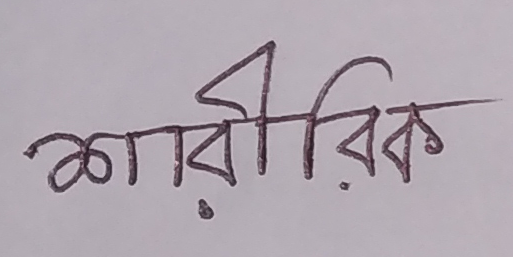 শারীরিক